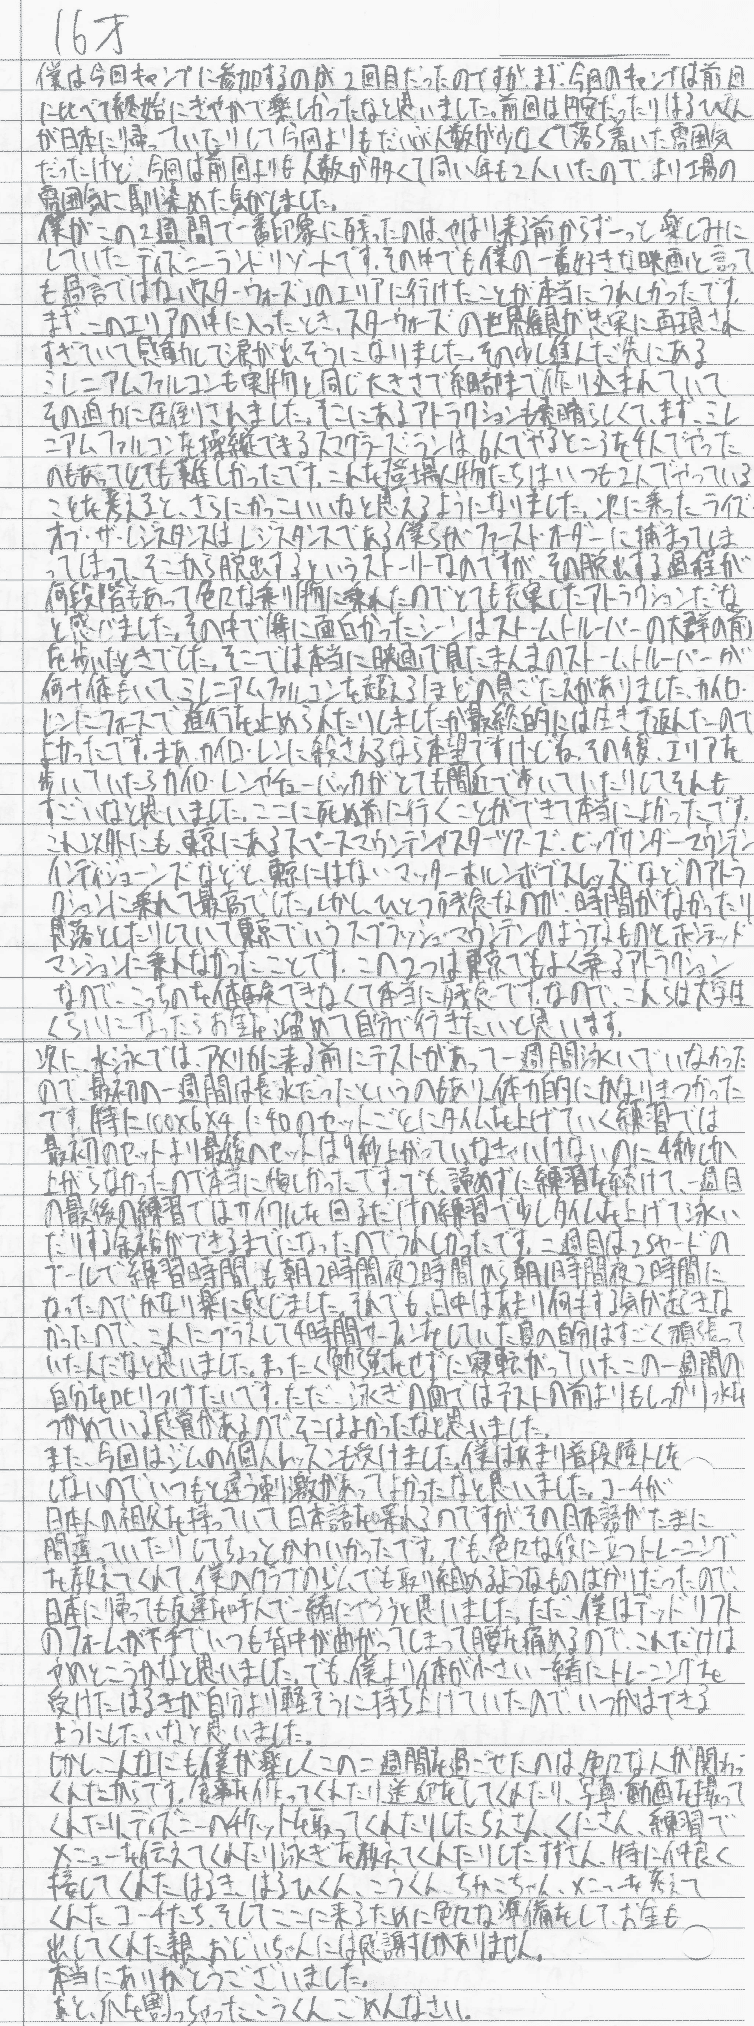 16才
僕は今回キャンプに参加するのが2回目だったのですが、まず、今回のキャンプは前回
に比べて終始にぎやかで楽しかったなと思いました。前回は円安だったりはるひくん
が日本に帰っていたりして今回よりもだいぶ人数が少なくて落ち着いた雰囲気
だったけど、今回は前回よりも人数が多くて同い年も2人いたので、より場の
雰囲気に馴染めた気がしました。
僕がこの2週間で一番印象に残ったのは、やはり来る前からずーっと楽しみに
していたディズニーランドリゾートです。その中でも僕の一番好きな映画と言って
も過言ではない「スターウォーズ」のエリアに行けたことが本当にうれしかったです。
まず、このエリアの中に入ったとき、スターウォーズの世界観が忠実に再現され
すぎていて感動して涙が出そうになりました。その少し進んだ先にある
ミレニアムファルコンも実物と同じ大きさで細部まで作り込まれていて
その迫力に圧倒されました。そこにあるアトラクションも素晴らしくて、まず、ミレ
ニアムファルコンを操縦できるスマグラーズ・ランは、6人でやるところを4人でやった
のもあってとても難しかったです。これを登場人物たちはいつも2人でやっている
ことを考えると、さらにかっこいいなと思えるようになりました。次に乗ったライズ・
オブ・ザ・レジスタンスはレジスタンスである僕らがファースト・オーダーに捕まってしま
ってしまって、そこから脱出するというストーリーなのですが、その脱出する過程が
何段階もあって色々な乗り物に乗れたのでとても充実したアトラクションだな
と感じました。その中で特に面白かったシーンはストームトルーパーの大群の前
を歩いたときでした。そこでは本当に映画で見たまんまのストームトルーパーが
何十体もいて、ミレニアムファルコンを超えるほどの見ごたえがありました。カイロ・
レンにフォースで進行を止められたりしましたが最終的には生きて返れたので
よかったです。まあ、カイロ・レンに殺されるなら本望ですけどね。その後、エリアを
歩いていたらカイロ・レンやチューバッカがとても間近で歩いていたりしてそれも
すごいなと思いました。ここに死ぬ前に行くことができて本当によかったです。
これ以外にも、東京にあるスペースマウンテンやスターツアーズ・ビッグサンダーマウンテン
インディジョーンズなどと、東京にはないマッターホルンボブスレッズなどのアトラ
クションに乗れて最高でした。しかし、ひとつ残念なのが、時間がなかったり
見落としたりしていて東京でいうスプラッシュマウンテンのようなものとホンテッド
マンションに乗れなかったことです。この2つは東京でもよく乗るアトラクション
なので、こっちのを体験できなくて本当に残念です。なので、これらは大学生
くらいになったらお金を溜めて自分で行きたいと思います。
次に、水泳では、アメリカに来る前にテストがあって一週間泳いでいなかった
ので、最初の一週間は長水だったというのもあり、体力的にかなりきつかった
です。特に100×6×4 1:40のセットごとにタイムを上げていく練習では
最初のセットより最後のセットは9秒上がっていなきゃいけないのに4秒しか
上がらなかったので本当に悔しかったです。でも、諦めずに練習を続けて、一週目
の最後の練習ではサイクルを回るだけの練習で少しタイムを上げて泳い
だりする余裕ができるまでになったのでうれしかったです。二週目は25ヤードの
プールで練習時間も朝2時間夜2時間から朝1時間夜2時間に
なったのでかなり楽に感じました。それでも、日中はあまり何もする気が起きな
かったので、これにプラスして4時間サーフィンをしていた夏の自分はすごく頑張って
いたんだなと思いました。まったく勉強をせずに寝転がっていたこの一週間の
自分を叱りつけたいです。ただ、泳ぎの面ではテストの前よりもしっかり水を
つかめている感覚があるので、そこはよかったなと思いました。
また、今回はジムの個人レッスンも受けました。僕はあまり普段陸トレを
しないのでいつもと違う刺激があってよかったなと思いました。コーチが
日本人の祖父を持っていて日本語を喋れるのですが、その日本語がたまに
間違っていたりしてちょっとかわいかったです。でも、色々な役に立つトレーニング
を教えてくれて、僕のクラブのジムでも取り組めるようなものばかりだったので、
日本に帰っても友達を呼んで一緒にやろうと思いました。ただ、僕はデッドリフト
のフォームが下手でいつも背中が曲がってしまって腰を痛めるので、これだけは
やめとこうかなと思いました。でも、僕より体が小さい一緒にトレーニングを
受けたはるきが自分より軽そうに持ち上げていたので、いつかはできる
ようにしたいなと思いました。
しかし、こんなにも僕が楽しくこの二週間を過ごせたのは、色々な人が関わって
くれたからです。食事を作ってくれたり、送迎をしてくれたり、写真・動画を撮って
くれたり、ディズニーのチケットを取ってくれたりしたちえさん、くにさん、練習で
メニューを伝えてくれたり泳ぎを教えてくれたりしたすずさん、特に仲良く
接してくれたはるき、はるひくん、こうくん、ちかこちゃん、メニューを考えて
くれたコーチたち、そしてここに来るために色々な準備をして、お金も
出してくれた親、おじいちゃんには感謝しかありません。
本当にありがとうございました。
あと、爪を割っちゃったこうくんごめんなさい。